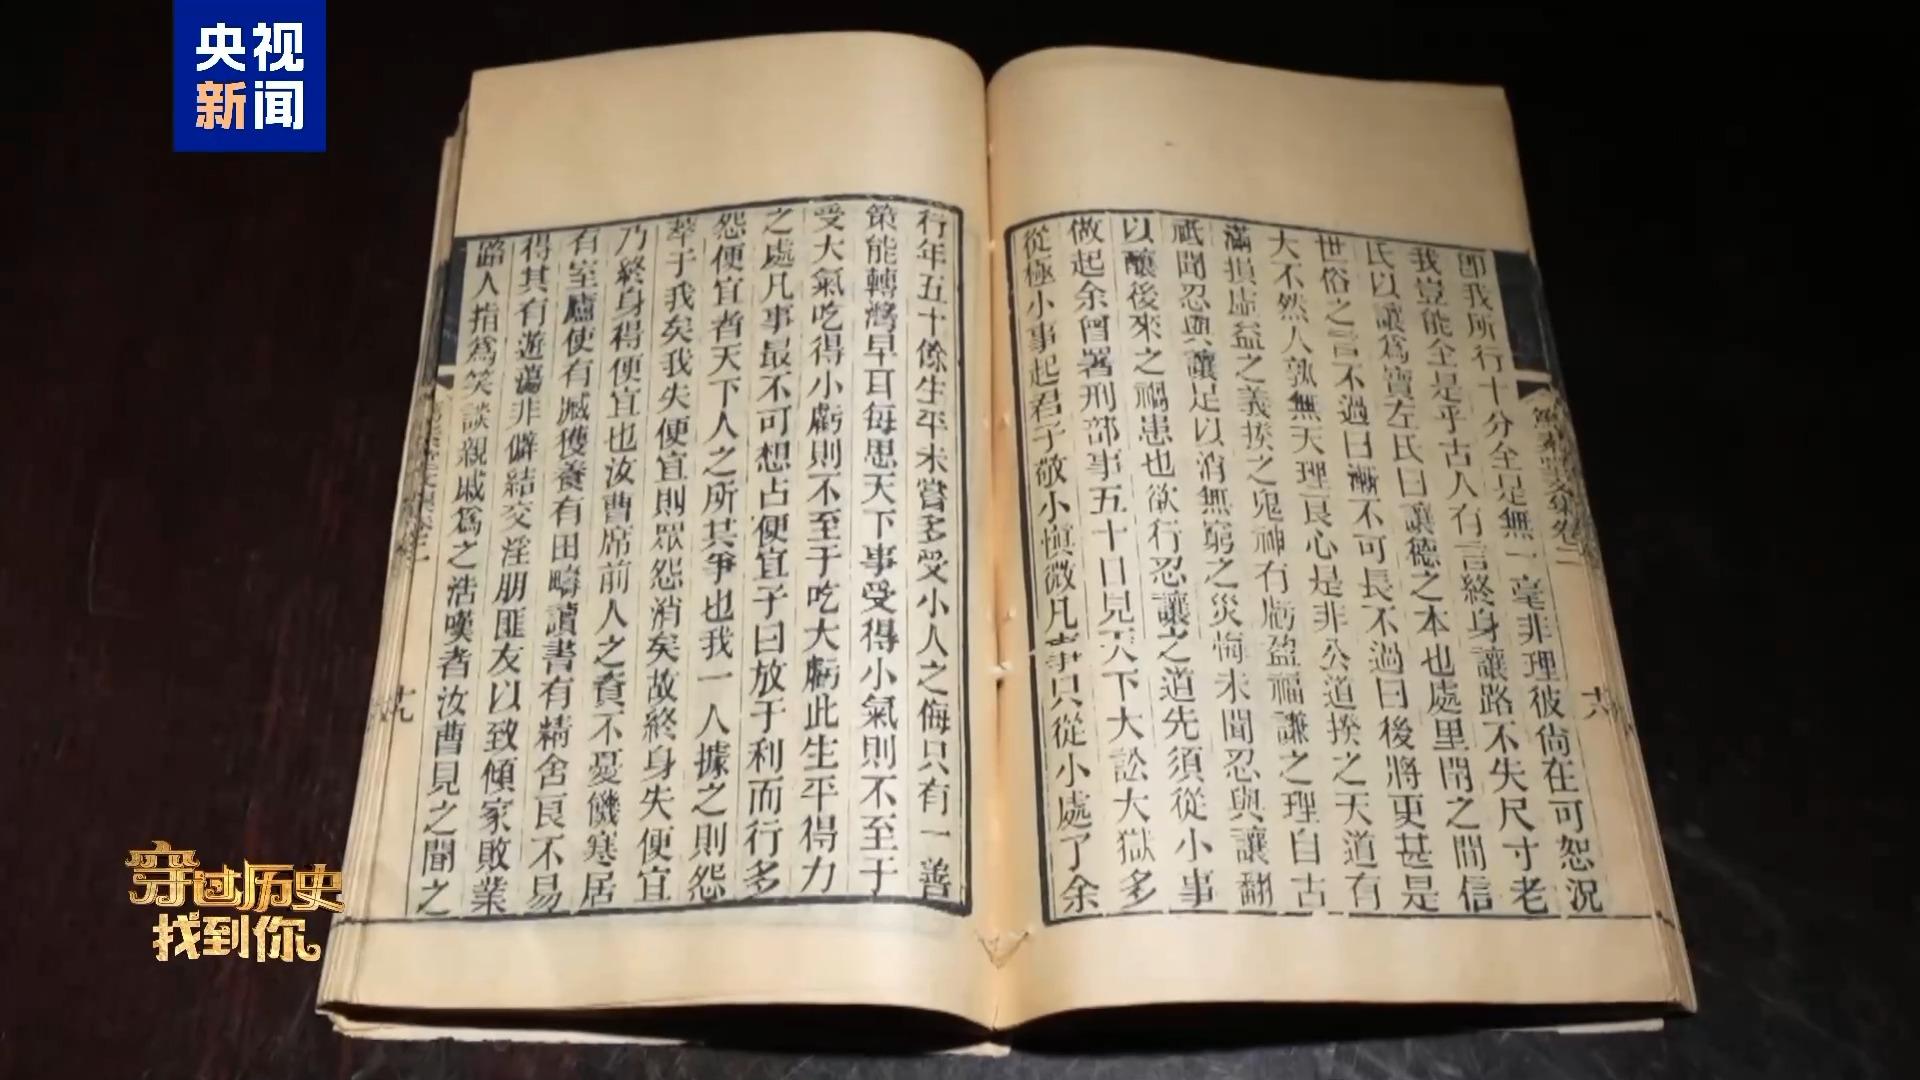 央视
新闻
即我所行十分全是無一毫非理彼尙在可恕況
我豈能全是乎古人有言終身讓路不失尺寸老
氏以讓爲寶左氏曰讓德之本也處里閈之間信
世俗之言不過曰漸不可長不過曰後將更甚是
大不然人孰無天理良心是非公道揆之天道有
滿損虛益之義揆之鬼神有虧盈福謙之理自古
祇聞忍與讓足以消無窮之災悔未聞忍與讓翻
以釀後來之禍患也欲行忍讓之道先須從小事
做起余曾署刑部事五十日見天下大訟大獄多
從極小事起君子敬小愼微凡事只從小處了余
行年五十餘生平未嘗多受小人之侮只有一善
策能轉灣早耳每思天下事受得小氣則不至于
受大氣吃得小虧則不至于吃大虧此生平得力
之處凡事最不可想占便宜子曰放于利而行多
怨便宜者天下人之所共爭也我一人據之則怨
萃于我矣我失便宜則眾怨消矣故終身失便宜
乃終身得便宜也汝曹席前人之資不憂饑寒居
有室廬使有臧獲養有田疇讀書有精舍良不易
得其有遊蕩非僻結交淫朋匪友以致傾家敗業
路人指爲笑談親戚爲之浩嘆者汝曹見之聞之
十九
穿过历史
找到你